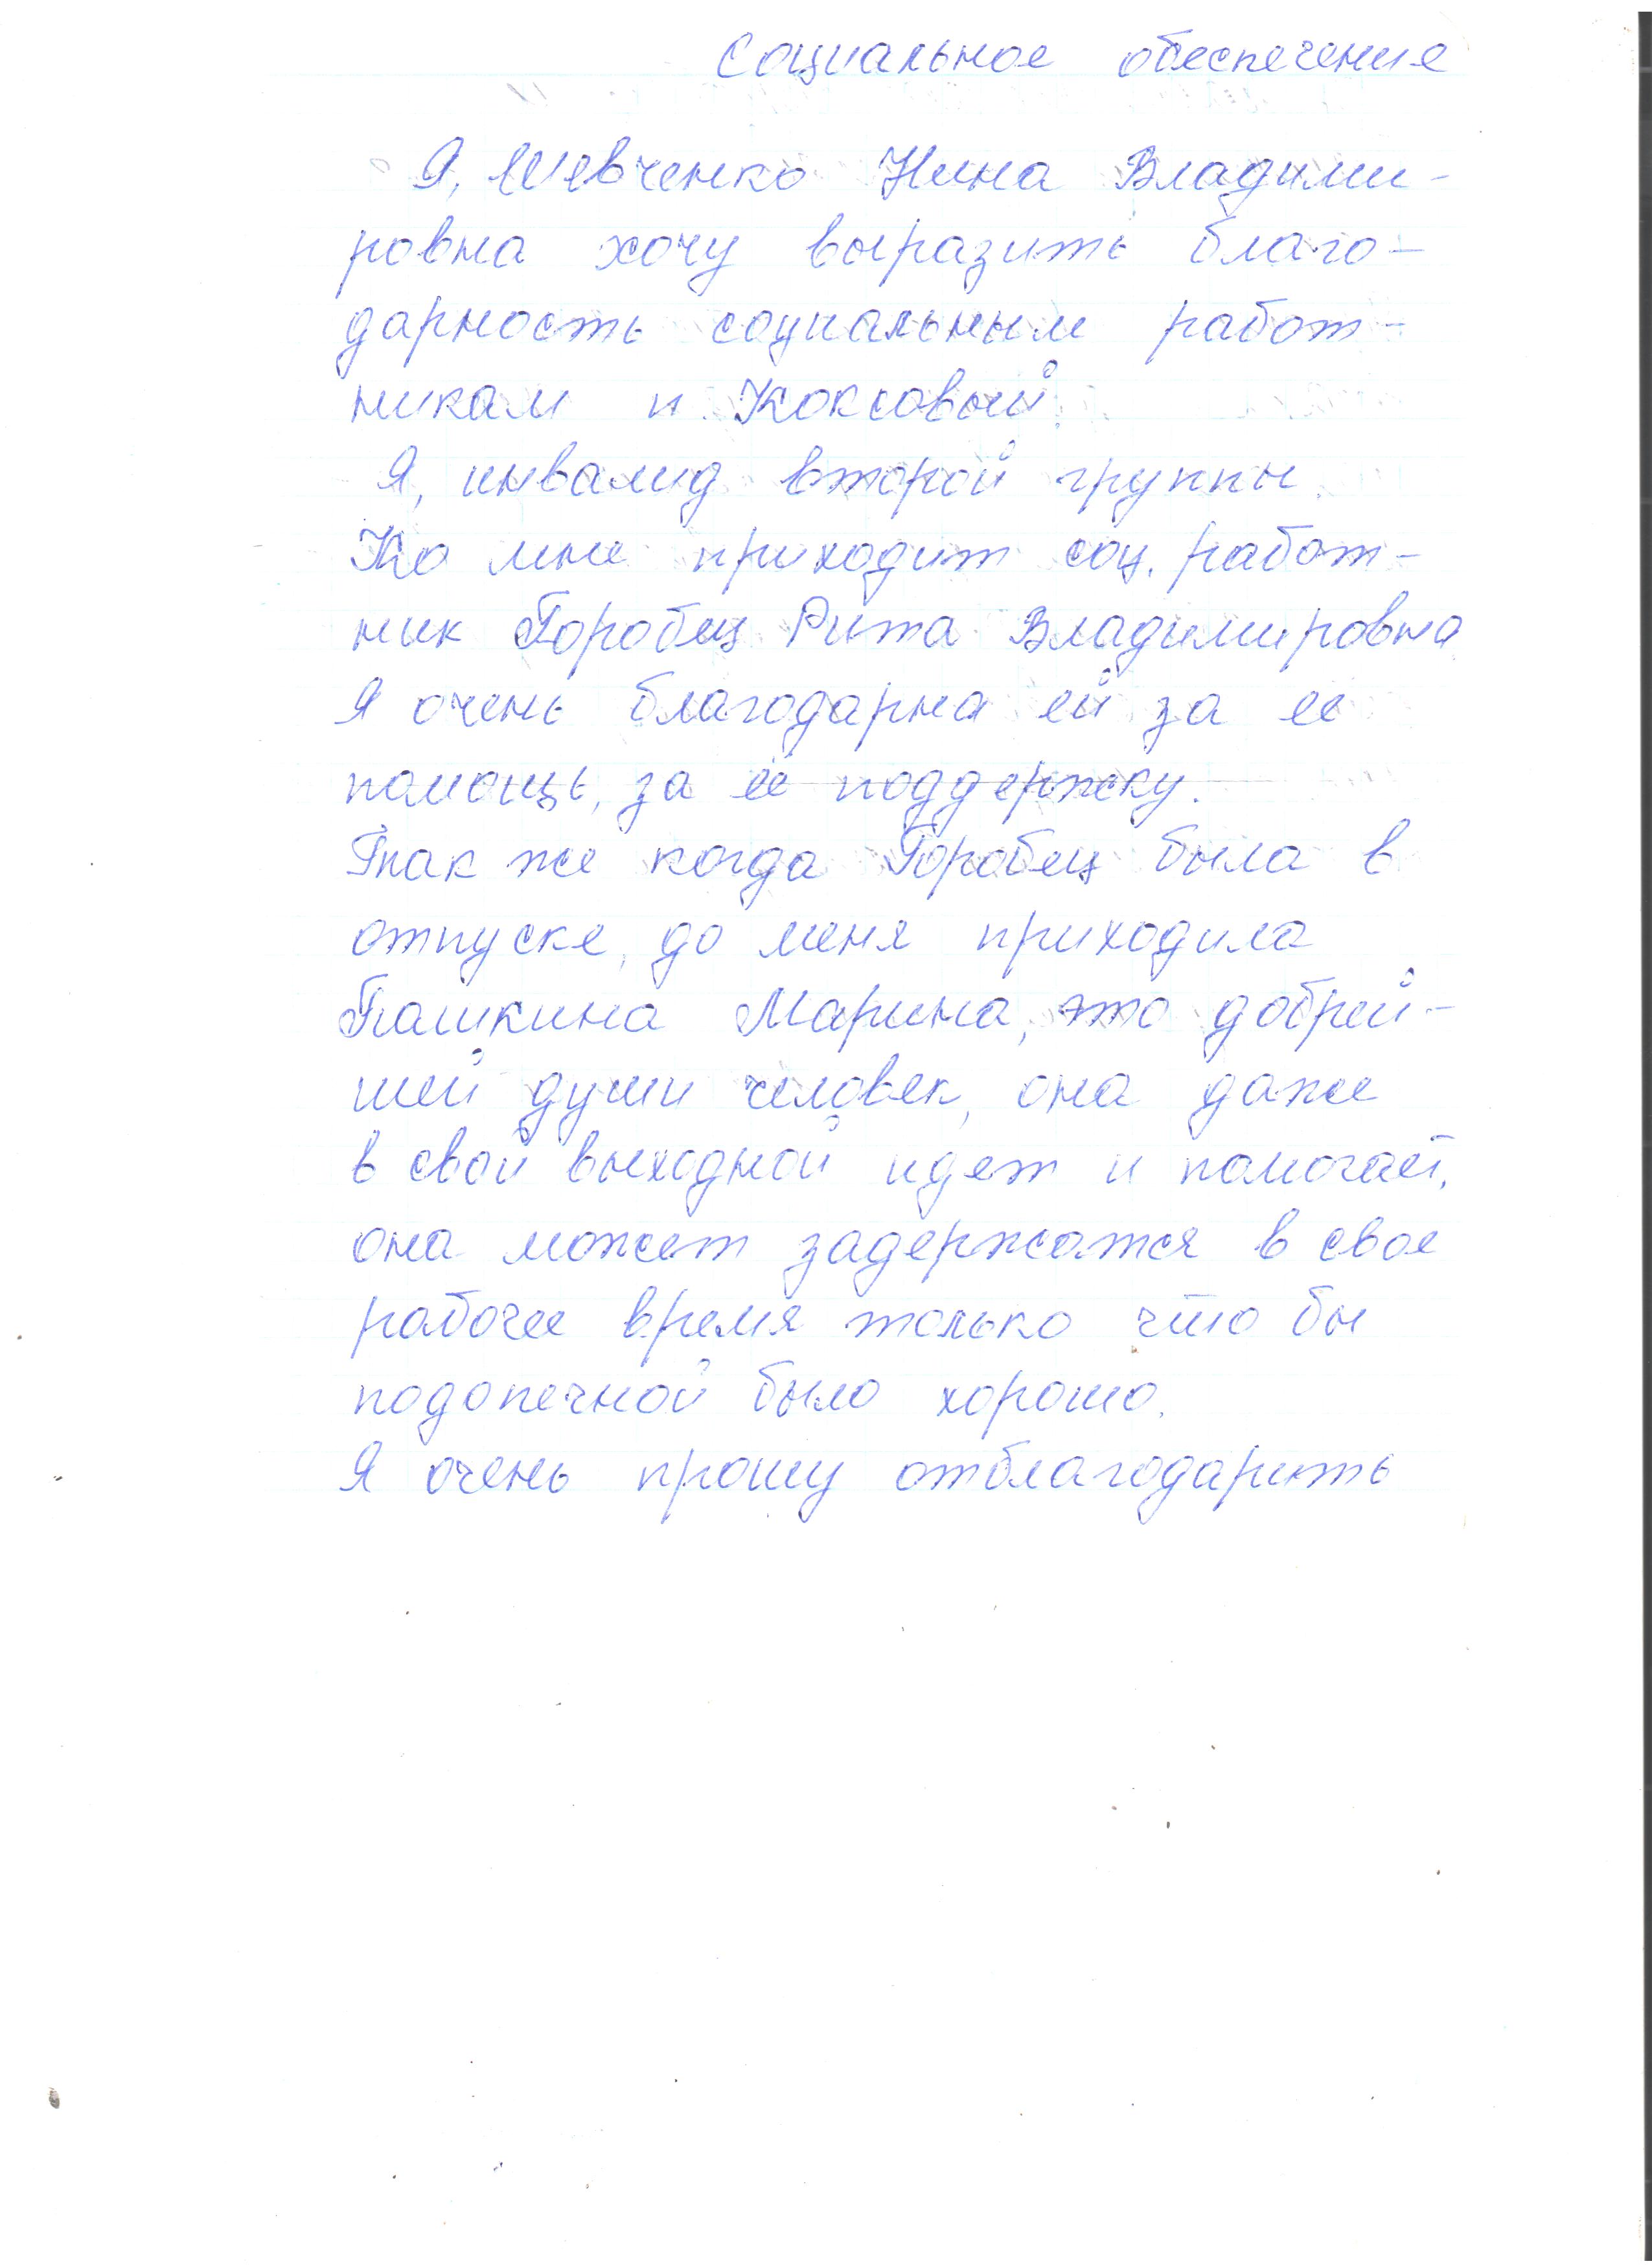 Социальное обеспечение
Я, Шевченко Нина Владими-
ровна хочу выразить благо-
дарность социальным работ-
никам п. Коксовый.
Я, инвалид второй группы.
Ко мне приходит соц. работ-
ник Горобец Рита Владимировна
Я очень благодарна ей за ее
помощь, за её поддержку.
Так же когда Горобец была в
отпуске, до меня приходила
Пашкина Марина, это добрей-
шей души человек, она даже
в свой выходной идет и помогает,
она может задержатся в свое
рабочее время только что бы
подопечной было хорошо.
Я очень прошу отблагодарить